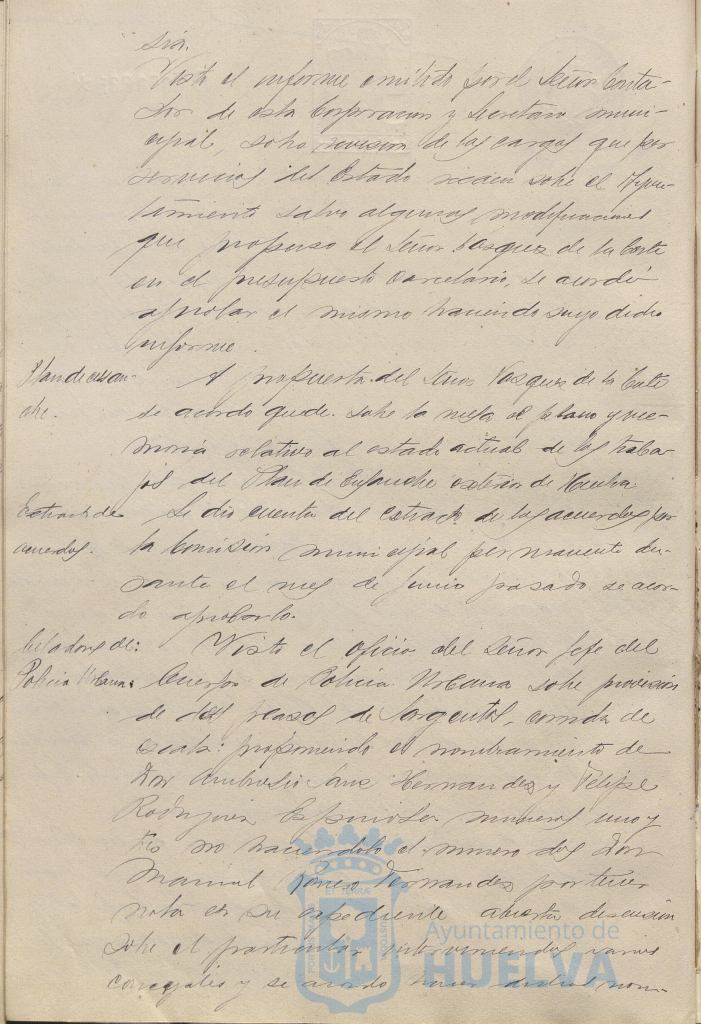 sia.
Visto el informe emitido por el Señor Conta-
dor de esta Corporacion y Secretario muni-
cipal, sobre revision de las cargas que por
servicios del Estado pesan sobre el Ayun-
tamiento salvo algunas modificaciones
que propuso el Señor Vasquez de la Corte
en el presupuesto carcelario, se acordó
aprobar el mismo haciendo suyo dicho
informe.
Plan de ensan-
che.
A propuesta del Señor Vasquez de la Corte
se acordó quede sobre la mesa el plano y me-
moria relativo al estado actual de los traba-
jos del Plan de Ensanche exterior de Huelva.
Extracto de
acuerdos.
Se dio cuenta del extracto de los acuerdos por
la Comisión municipal permanente du-
rante el mes de Junio pasado se acor-
dó aprobarlo.
Policia Urbana.
Visto el oficio del Señor Jefe del
Cuerpo de Policia Urbana sobre provision
de dos plazas de Sargentos, corrida de
escala: proponiendo el nombramiento de
Don Ambrosio Sanz Hernandez y Felipe
Rodriguez Espinosa numeros uno y
tres no haciendolo el numero dos Don
Manuel Fernandez por tener
nota en su expediente abierta discusión
sobre el particular interviniendo varios
concejales y se acordó hacer dichos nom-
Ayuntamiento de
HUELVA